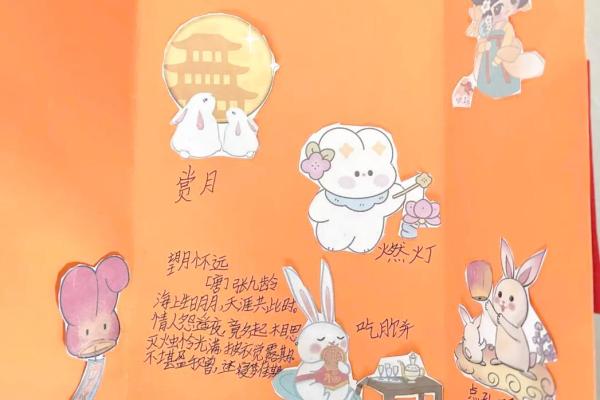 赏月
燃灯
望月怀远
〔唐〕张九龄
海上生明月，天涯共此时。
情人怨遥夜，竟夕起相思。
灭烛怜光满，披衣觉露滋。
不堪盈手赠，还寝梦佳期
吃月饼
点孔